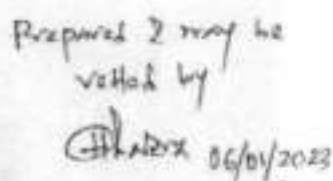 Prepared & may be
vetted by
06/01/2023